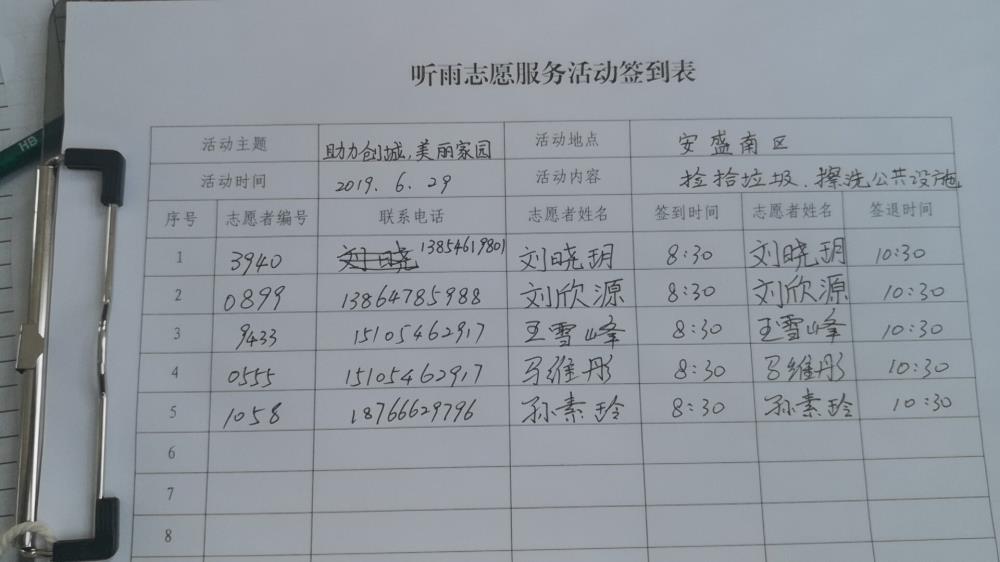 HB
听雨志愿服务活动签到表
活动主题 助力创城,美丽家园 活动地点 安盛南区
活动时间 2019.6.29 活动内容 捡拾垃圾、擦洗公共设施
序号 志愿者编号 联系电话 志愿者姓名 签到时间 志愿者姓名 签退时间
1 3940 刘晓 13854619801 刘晓玥 8:30 刘晓玥 10:30
2 0899 13864785988 刘欣源 8:30 刘欣源 10:30
3 9433 15105462917 王雪峰 8:30 王雪峰 10:30
4 0555 15105462917 马维彤 8:30 马维彤 10:30
5 1058 18766629796 孙素玲 8:30 孙素玲 10:30
6
7
8